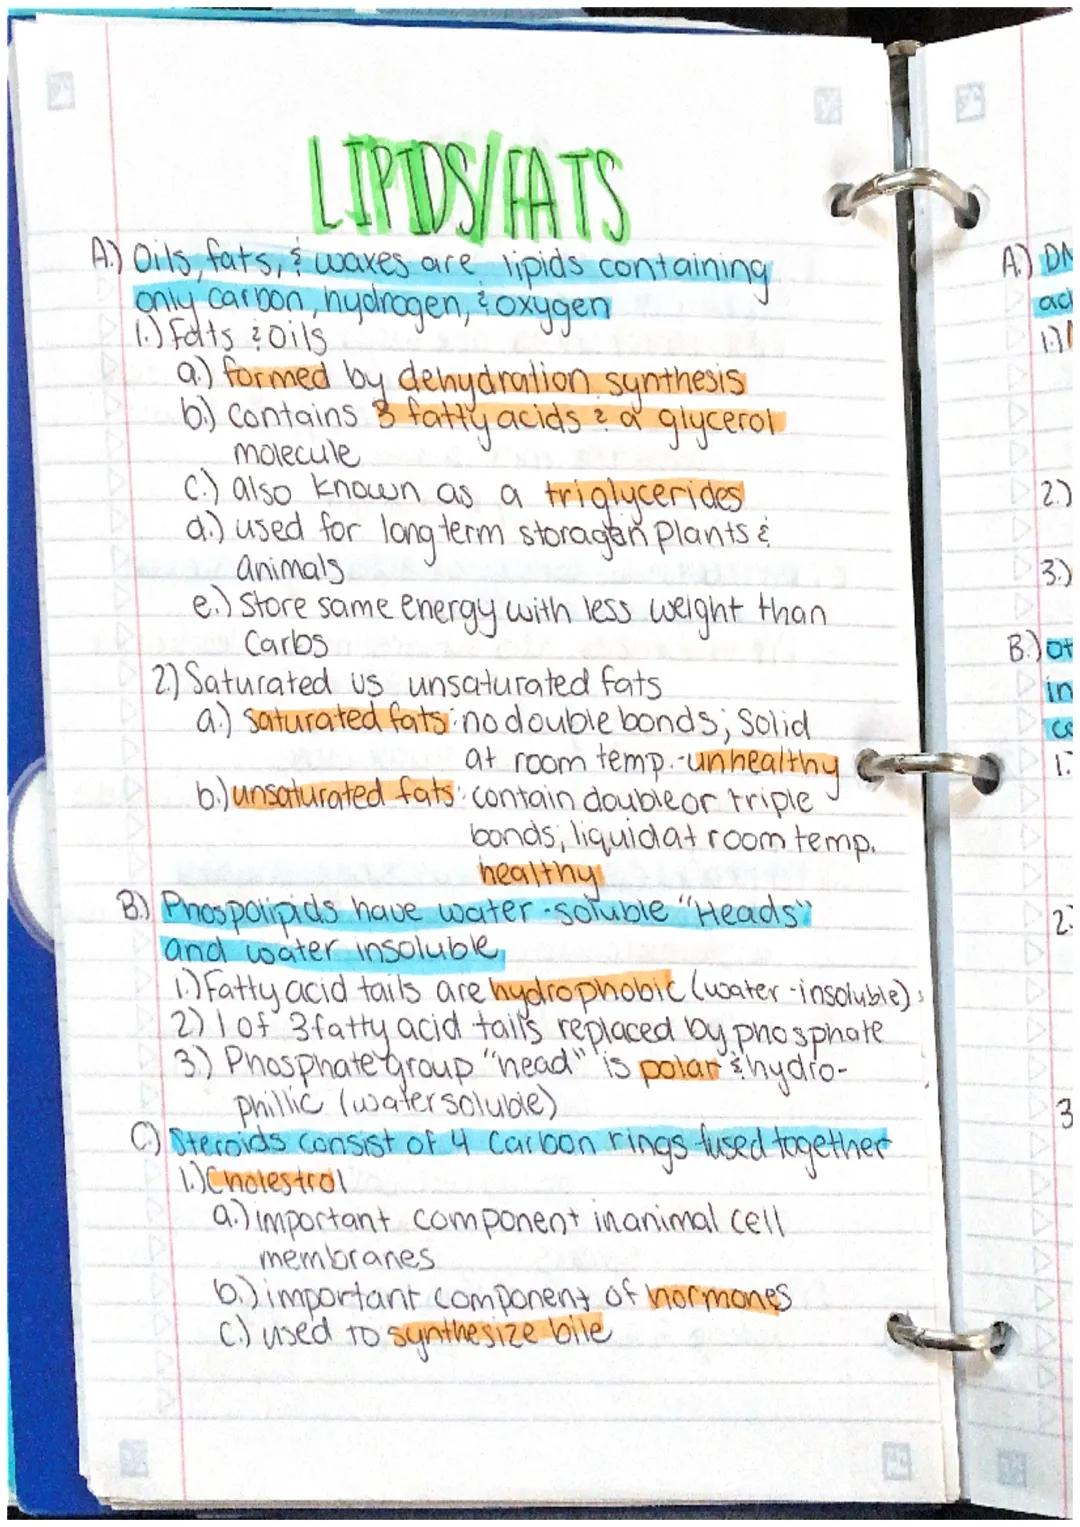 LIPIDS/FATS
A.) Oils, fats, & waxes are lipids containing
only carbon, hydrogen, & oxygen
1.) Fats & Oils
a.) formed by dehydration synthesis
b.) contains 3 fatty acids & a glycerol
molecule
c.) also known as a triglycerides
d.) used for long term storagen plants &
animals
e.) store same energy with less weight than
carbs
2.) Saturated vs unsaturated fats
a.) saturated fats: no double bonds; solid
at room temp.-unhealthy
b.) unsaturated fats: contain double or triple
bonds; liquid at room temp.
healthy
B.) Phospolipids have water-soluble "Heads"
and water insoluble
1.) Fatty acid tails are hydrophobic (water-insoluble)
2) 1 of 3 fatty acid tails replaced by phosphate
3.) Phosphate group "head" is polar & hydro-
phillic (water soluble)
C.) Steroids consist of 4 carbon rings fused together
1.) Cholestrol
a.) important component in animal cell
membranes
b.) important component of hormones
c.) used to synthesize bile
A.) DN
aci
1.)
2.)
3.)
B.) Ot
in
co
1.
2.
3